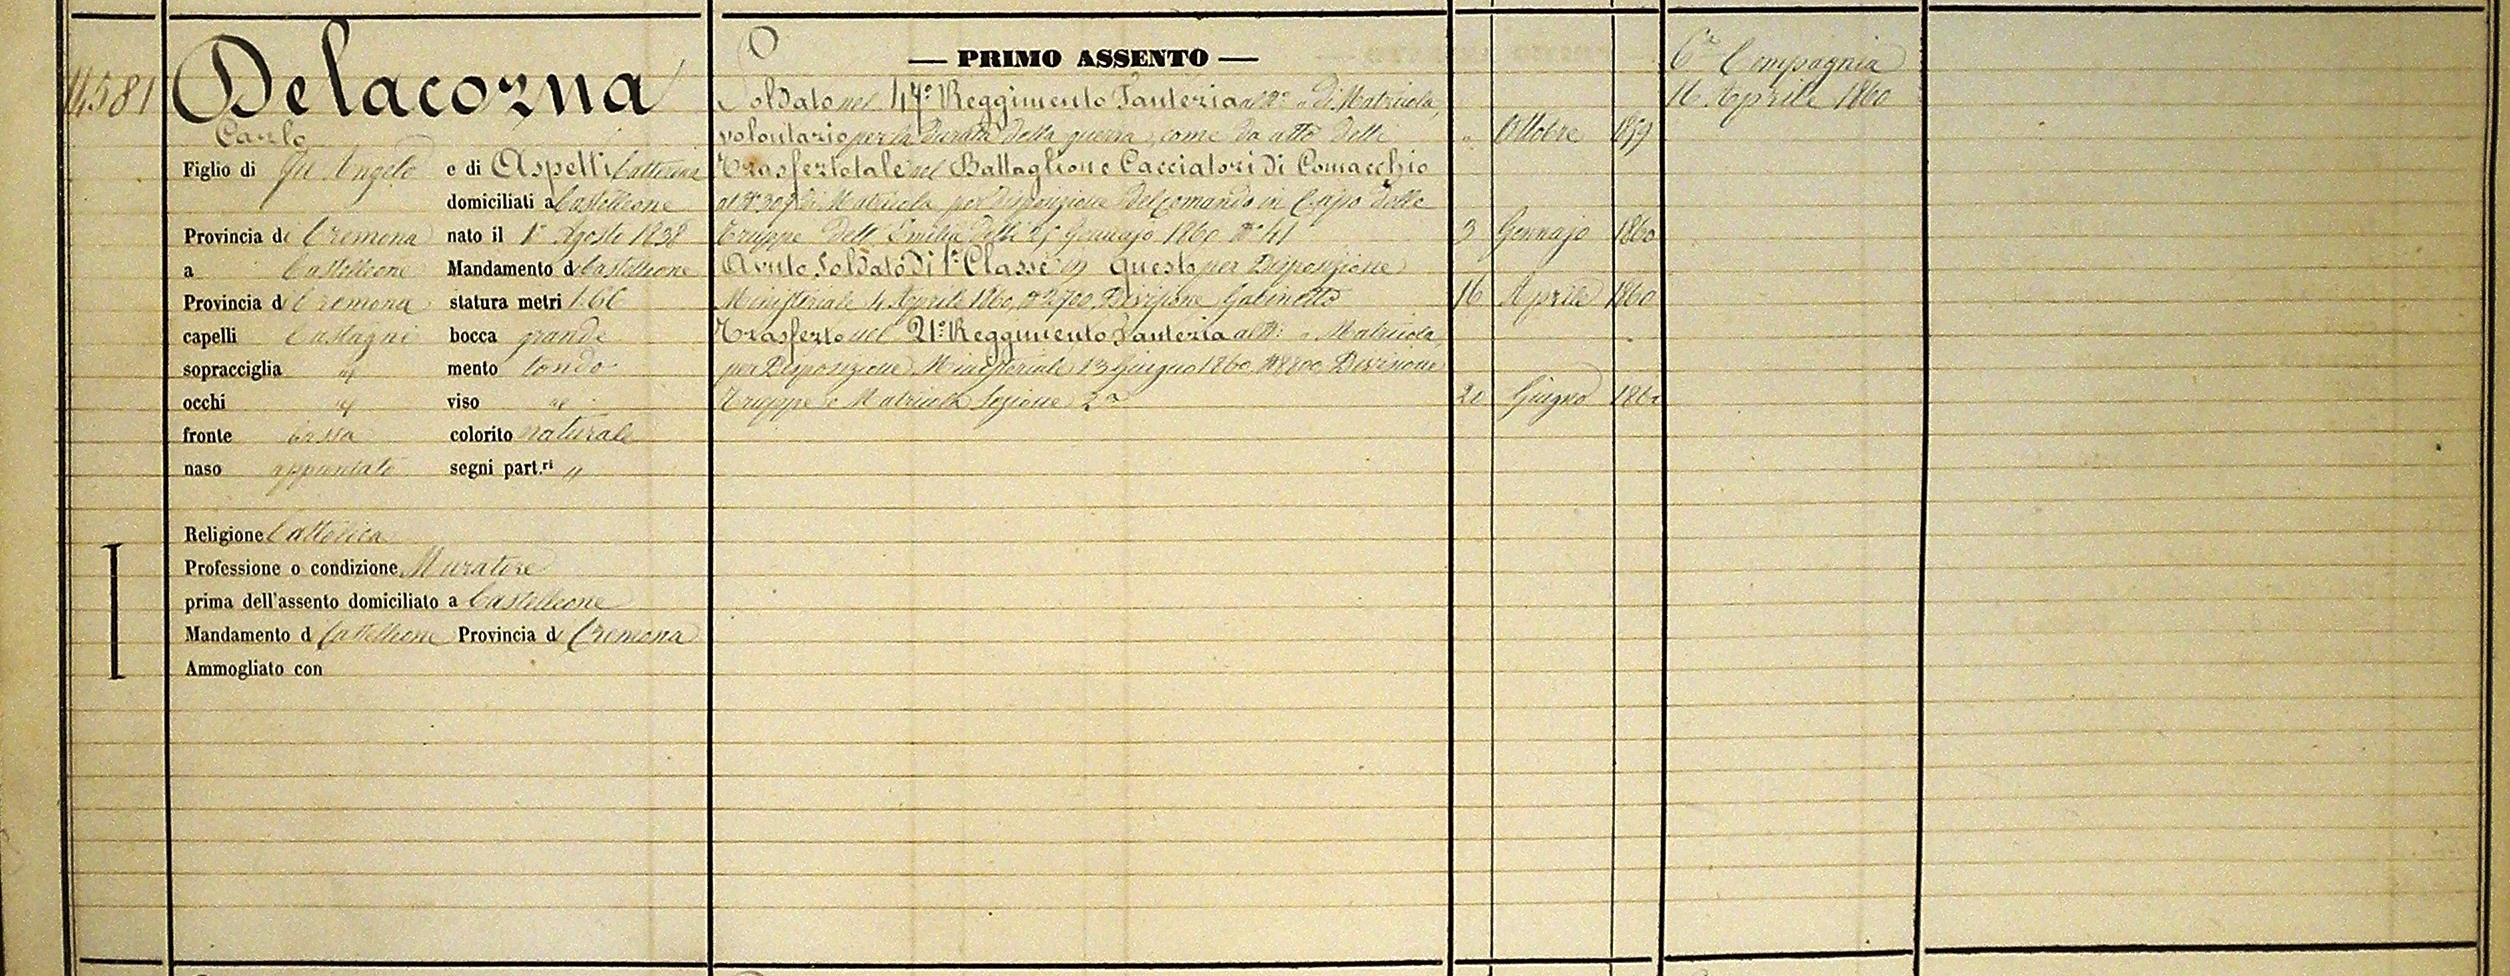 4581
Delacorna
Carlo
Figlio di fu Angelo e di Aspetti Catterina
domiciliati a Castelleone
Provincia di Cremona nato il 1° Agosto 1838
a Castelleone Mandamento di Castelleone
Provincia di Cremona statura metri 1.66
capelli Castagni bocca grande
sopracciglia id mento tondo
occhi id viso id
fronte bassa colorito naturale
naso appuntato segni part.ri "
Religione Cattolica
Professione o condizione Muratore
prima dell'assento domiciliato a Castelleone
Mandamento di Castelleone Provincia di Cremona
Ammogliato con
— PRIMO ASSENTO —
Soldato nel 47° Reggimento Fanteria al N° " di Matricola,
volontario per la durata della guerra, come da atto delli " Ottobre 1859
Trasferto tale nel Battaglione Cacciatori di Comacchio
al N° di Matricola per disposizione del comando in Capo delle
Truppe dell'Emilia delli 25 Gennajo 1860 N° 41 3 Gennajo 1860
Avuto Soldato di 1a Classe in questo per Disposizione
Ministeriale 4 Aprile 1860, N° 2700 Divisione Gabinetto 16 Aprile 1860
Trasferto nel 21° Reggimento Fanteria al N° " Matricola,
per Disposizione Ministeriale 13 Giugno 1860, N° 8800, Divisione
Truppe e Matricola Sezione 2a 20 Giugno 1860
6a Compagnia
16 Aprile 1860